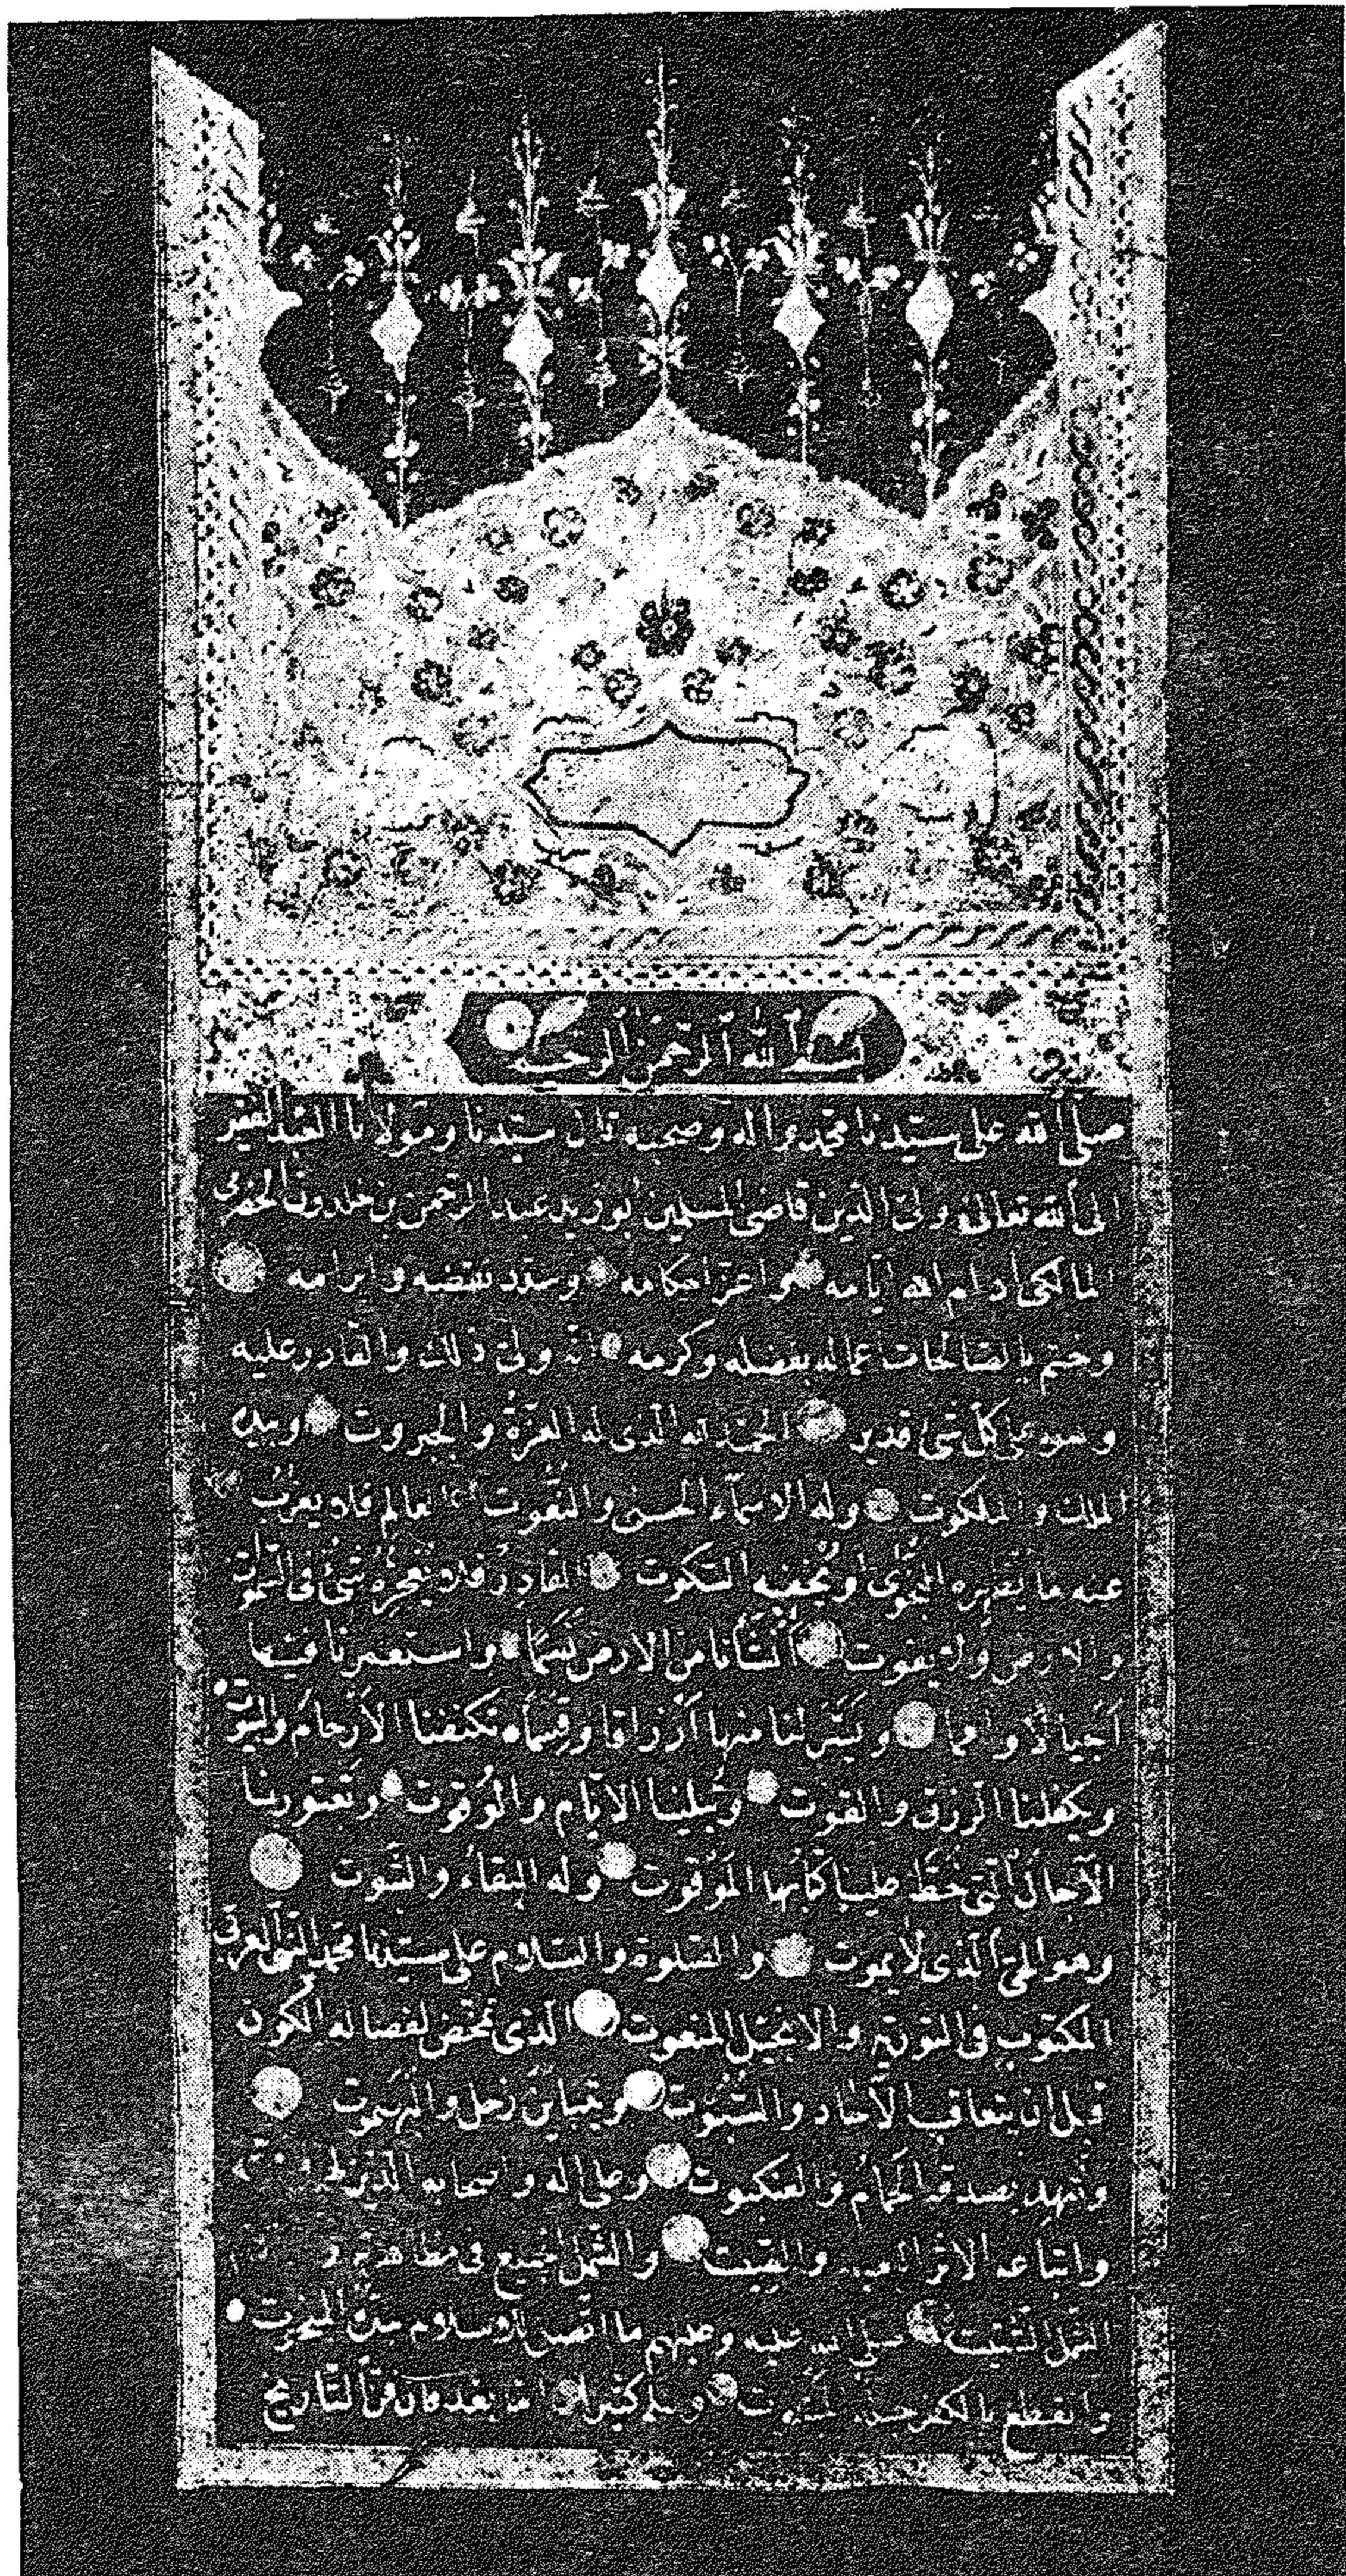 بسم الله الرحمن الرحيم
صلى الله على سيدنا محمد وآله وصحبه قال سيدنا ومولانا العبد الفقير
الى الله تعالى ولى الدين قاضى المسلمين ابو زيد عبد الرحمن بن خلدون الحضرمى
المالكى ادام الله ايامه واعز احكامه نقضه وابرامه
وختم بالصالحات اعماله بفضله وكرمه انه ولى ذلك والقادر عليه
وهو على كل شئ قدير الحمد لله الذى له العزة والجبروت وبيده
الملك والملكوت وله الاسماء الحسنى والنعوت العالم فلا يعزب
عنه ما تظهره النجوى او يخفيه السكوت القادر فلا يعجزه شئ فى السموات
والارض ولا يفوت انشأنا من الارض نسما واستعمرنا فيها
اجيالا وامما ويسر لنا منها ارزاقا وقسما تكنفنا الارحام والبيوت
ويكفلنا الرزق والقوت وتبلينا الايام والوقوت وتعتورنا
الآجال التى خط علينا كتابها الموقوت وله البقاء والثبوت
وهو الحى الذى لا يموت والصلوة والسلام على سيدنا محمد النبى العربى
المكتوب فى التورية والانجيل المنعوت الذى تمحض لفصاله الكون
قبل ان يتعاقب الآحاد والسبوت ويتباين زحل والبهموت
وشهد بصدقه الحمام والعنكبوت وعلى اله واصحابه الذين لهم
واتباعه الاثر البعيد والصيت والشمل الجميع فى مظاهرته و
الشمل الشتيت صلى الله عليه وعليهم ما اتصل بالاسلام جده المبخوت
وانقطع بالكفر حبله المبتوت وسلم كثيرا اما بعد فان فن التاريخ